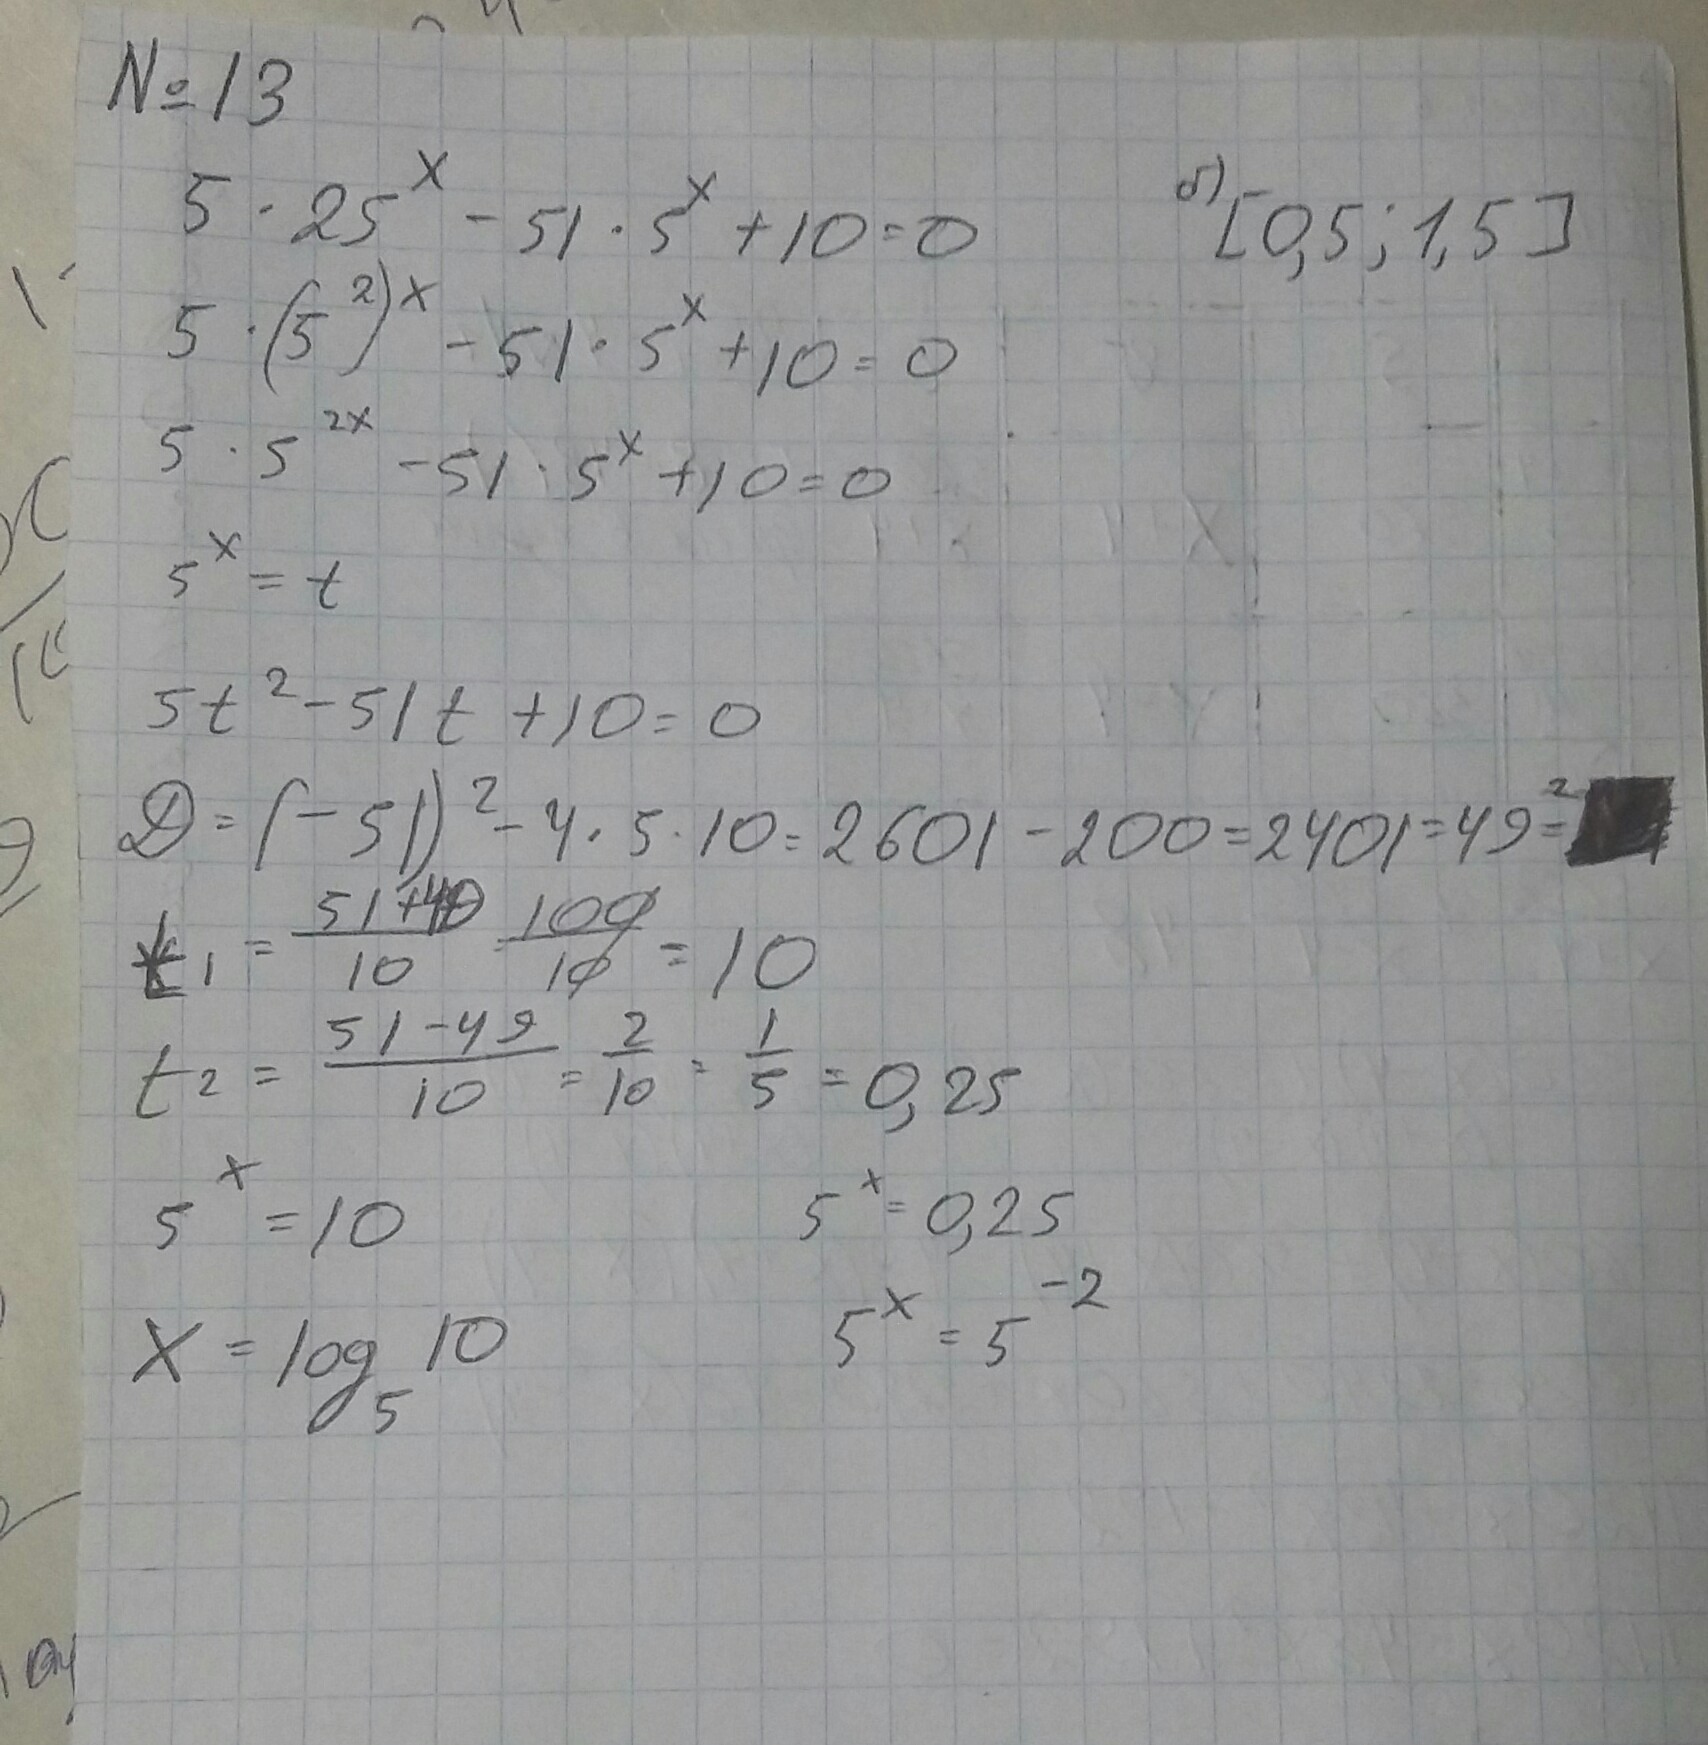 №13
5 · 25^x - 51 · 5^x + 10 = 0
б) [0,5; 1,5]
5 · (5^2)^x - 51 · 5^x + 10 = 0
5 · 5^2x - 51 · 5^x + 10 = 0
5^x = t
5t^2 - 51t + 10 = 0
D = (-51)^2 - 4 · 5 · 10 = 2601 - 200 = 2401 = 49^2
t1 = (51+49)/10 = 100/10 = 10
t2 = (51-49)/10 = 2/10 = 1/5 = 0,25
5^x = 10
5^x = 0,25
X = log_5 10
5^x = 5^-2